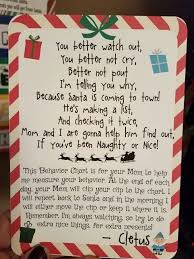 You better watch out,
You better not cry,
Better not pout
I'm telling you why,
Because Santa is coming to town!
He's making a list,
And checking it twice,
Mom and I are gonna help him find out,
If you've been Naughty or Nice!
This Behavior Chart is for your Mom to help
me measure your behavior. At the end of each
day, your Mom will clip your to the chart. I
will report back to Santa and in the morning I
will either move the clip or keep it where it is.
Remember, I'm always watching, so try to do
extra nice things for extra presents!
- Cletus